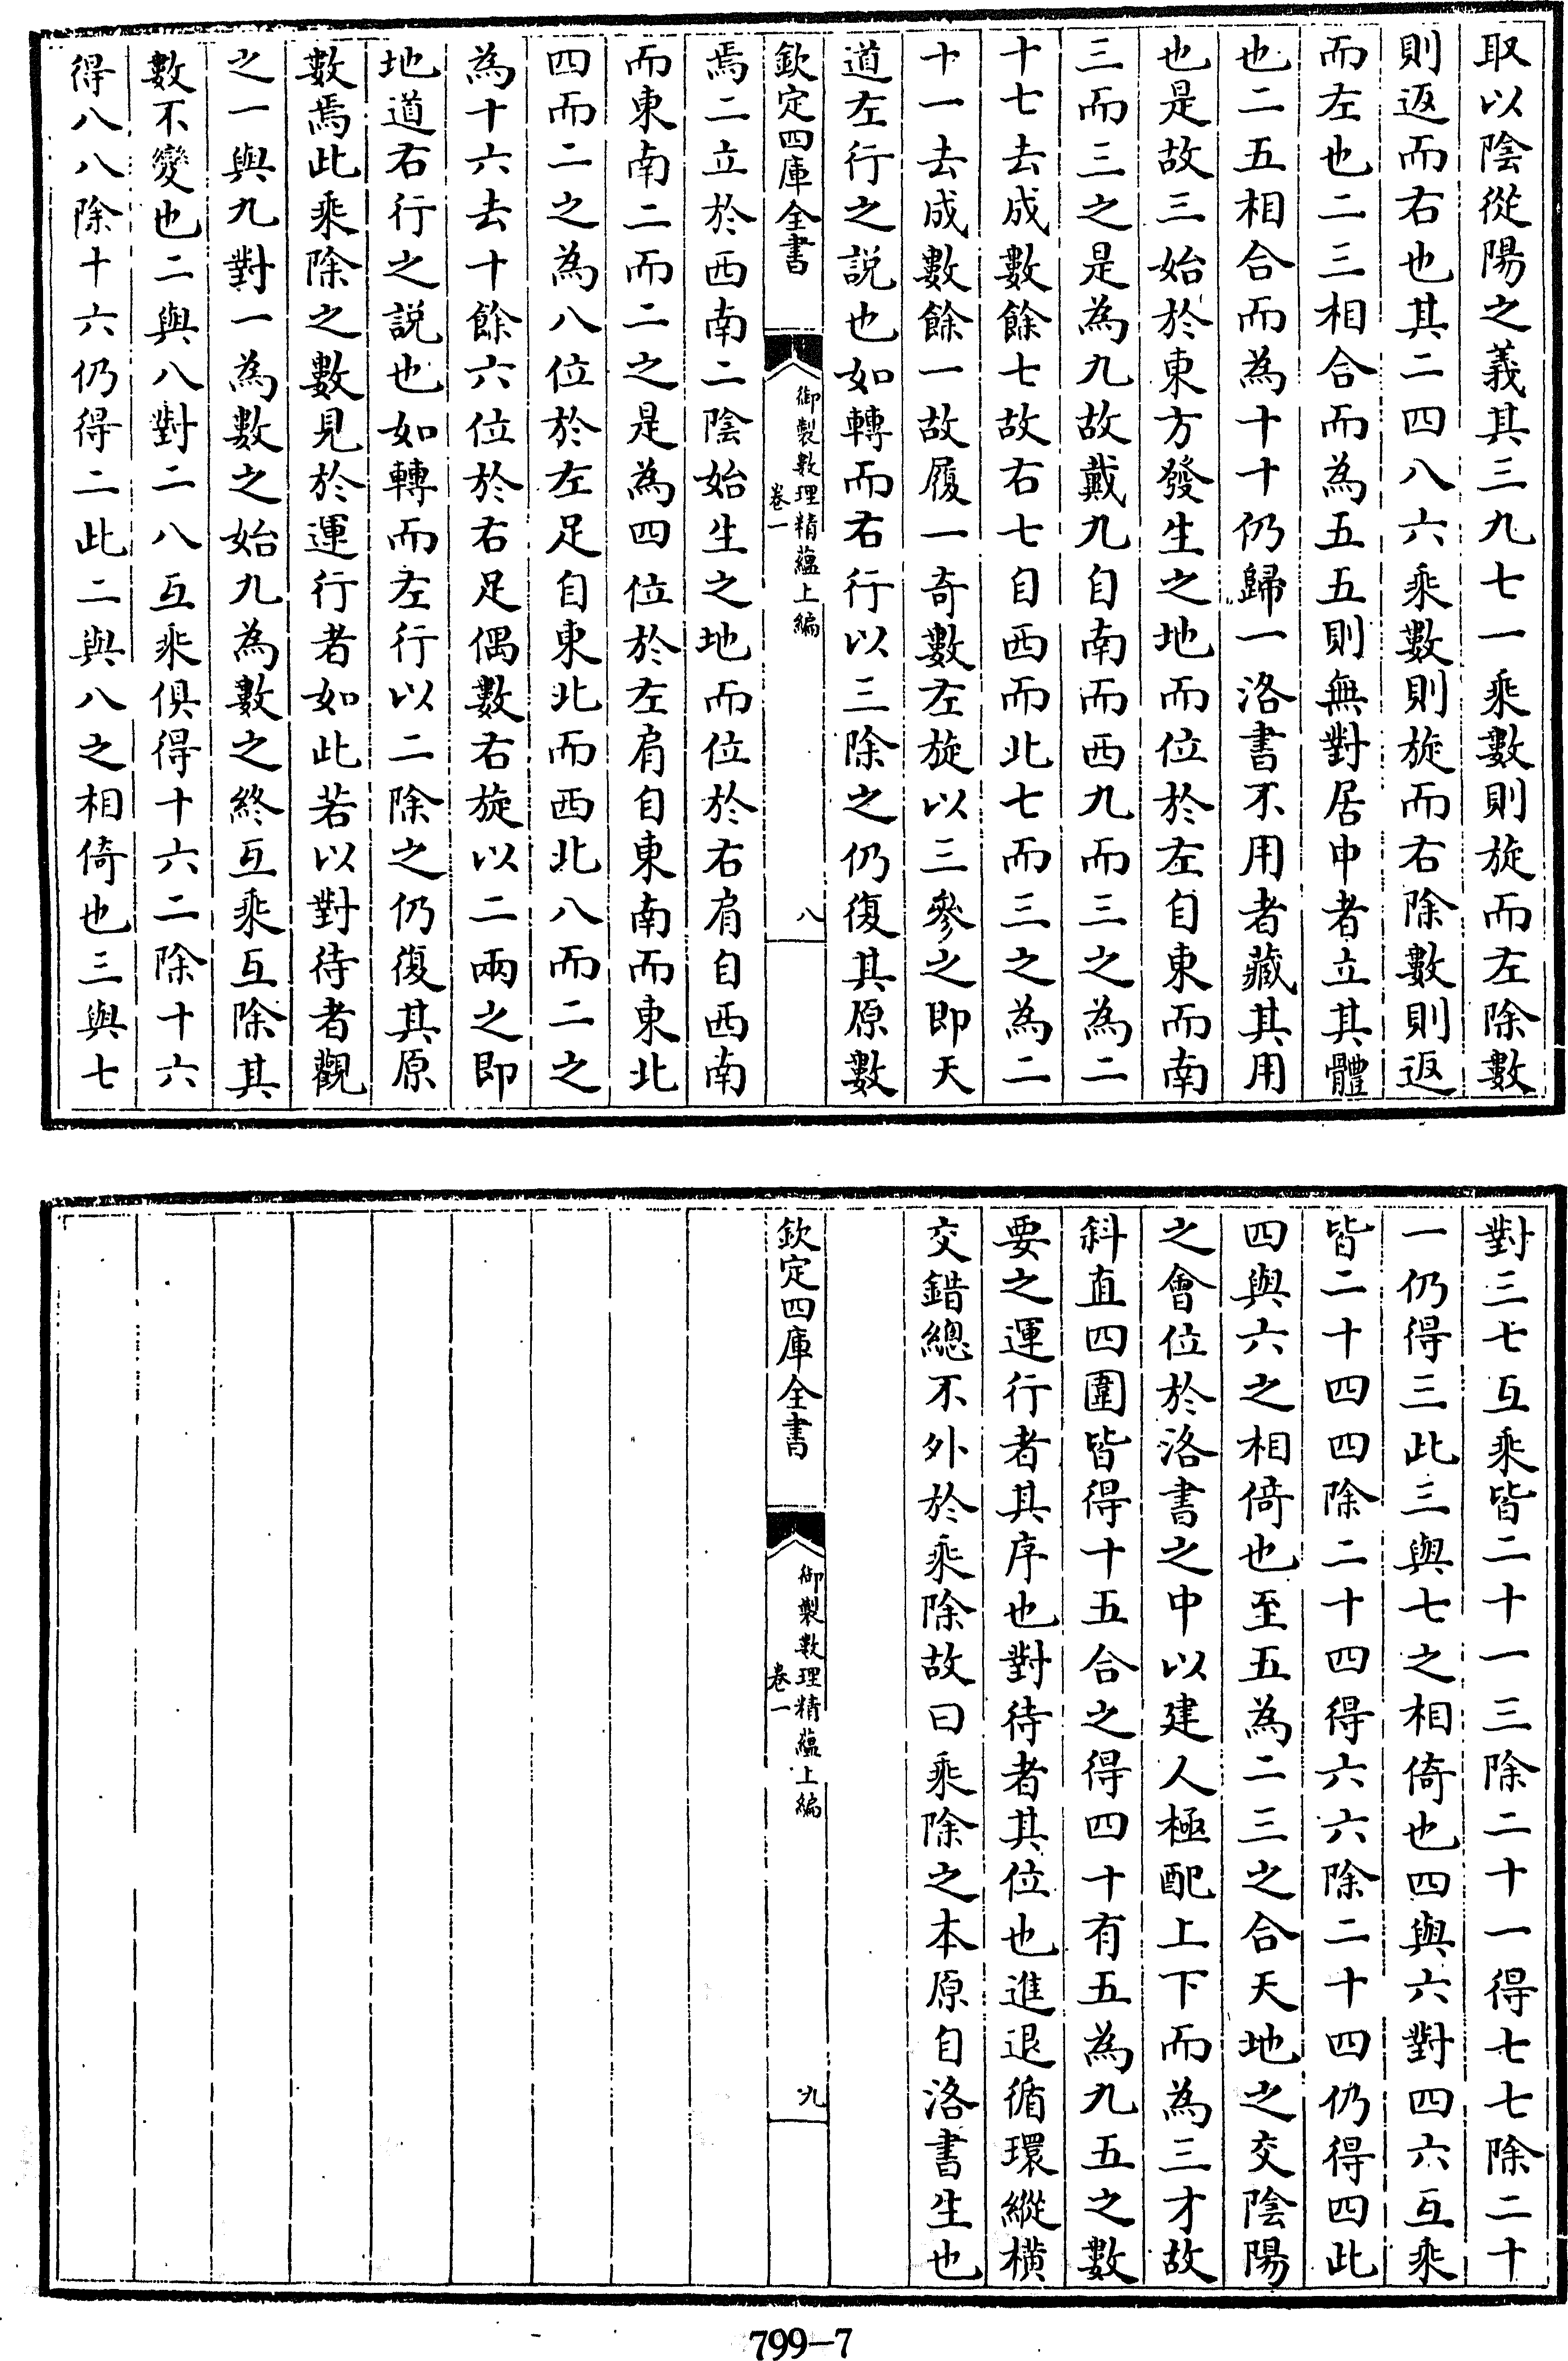 取以陰從陽之義其三九七一乘數則旋而左除數
則返而右也其二四八六乘數則旋而右除數則返
而左也二三相合而為五五則無對居中者立其體
也二五相合而為十十仍歸一洛書不用者藏其用
也是故三始於東方發生之地而位於左自東而南
三而三之是為九故戴九自南而西九而三之為二
十七去成數餘七故右七自西而北七而三之為二
十一去成數餘一故履一奇數左旋以三參之即天
道左行之説也如轉而右行以三除之仍復其原數
欽定四庫全書
御製數理精蘊上編
卷一
八
焉二立於西南二陰始生之地而位於右肩自西南
而東南二而二之是為四位於左肩自東南而東北
四而二之為八位於左足自東北而西北八而二之
為十六去十餘六位於右足偶數右旋以二兩之即
地道右行之説也如轉而左行以二除之仍復其原
數焉此乘除之數見於運行者如此若以對待者觀
之一與九對一為數之始九為數之終互乘互除其
數不變也二與八對二八互乘俱得十六二除十六
得八八除十六仍得二此二與八之相倚也三與七
對三七互乘皆二十一三除二十一得七七除二十
一仍得三此三與七之相倚也四與六對四六互乘
皆二十四四除二十四得六六除二十四仍得四此
四與六之相倚也至五為二三之合天地之交陰陽
之會位於洛書之中以建人極配上下而為三才故
斜直四圍皆得十五合之得四十有五為九五之數
要之運行者其序也對待者其位也進退循環縱橫
交錯總不外於乘除故曰乘除之本原自洛書生也
欽定四庫全書
御製數理精蘊上編
卷一
九
799-7